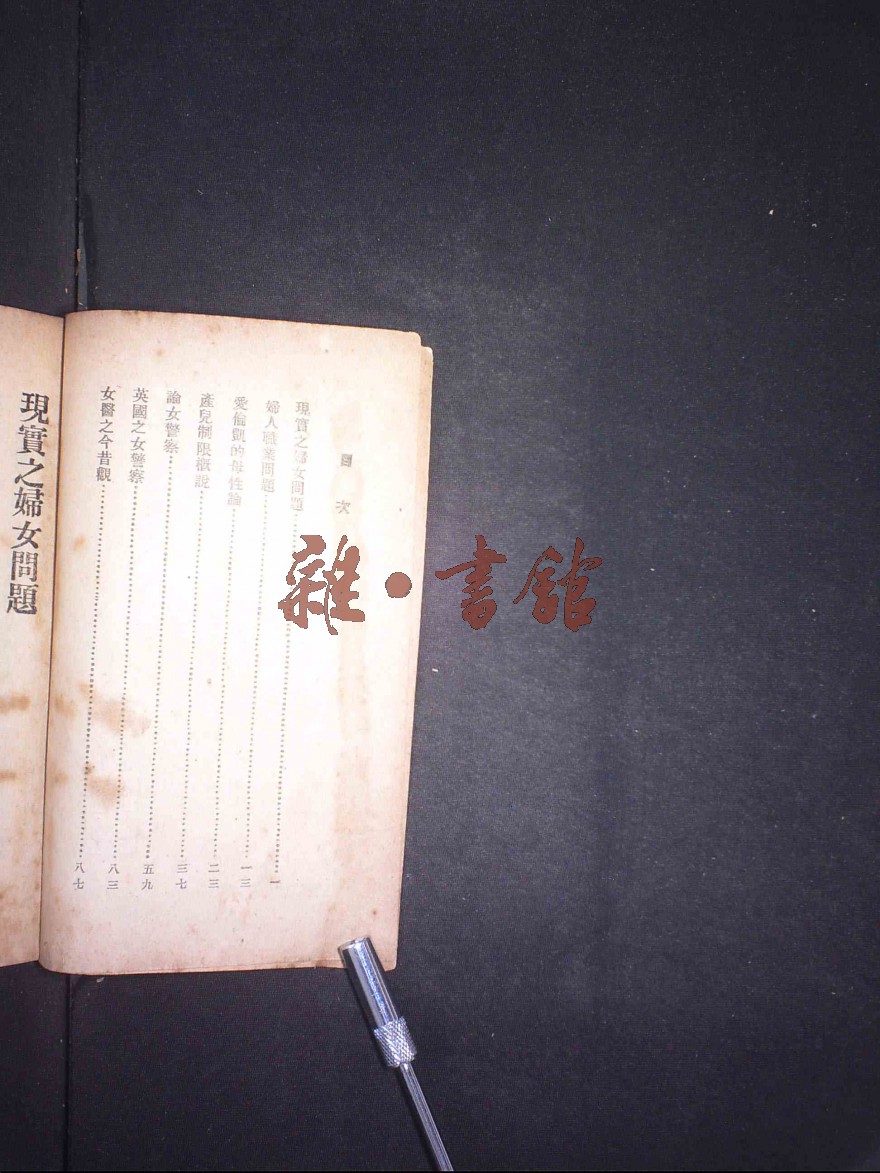 目次
現實之婦女問題……一
婦人職業問題……一三
愛倫凱的母性論……二三
產兒制限概說……三七
論女警察……五九
英國之女警察……八三
女醫之今昔觀……八七
現實之婦女問題
雜·書館